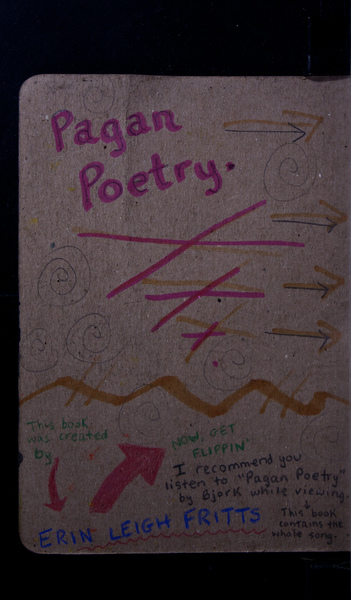 Pagan
Poetry.
This book
was created
by
ERIN LEIGH FRITTS
NOW, GET
FLIPPIN'
I recommend you
listen to "Pagan Poetry"
by Bjork while viewing.
This book
contains the
whole song.